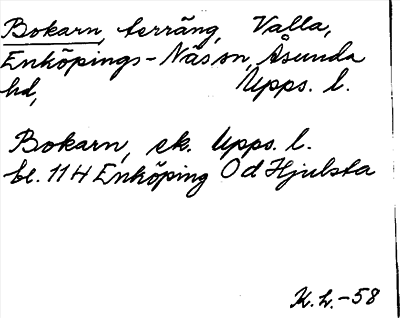 Bokarn, terräng, Valla,
Enköpings-Näs sn, Åsunda
hd, Upps. l.
Bokarn, ek. Upps. l.
bl. 114 Enköping Od Hjulsta
K.L.-58